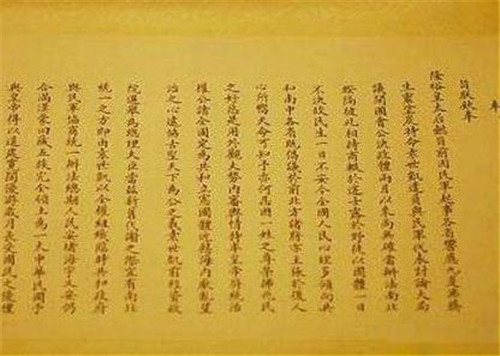 奉
旨朕欽奉
隆裕皇太后懿旨前因民軍起事各省響應九夏沸騰
生靈塗炭特命袁世凱遣員與民軍代表討論大局
議開國會公決政體兩月以來尚無確當辦法南北
暌隔彼此相持商輟於途士露於野徒以國體一日
不決故民生一日不安今全國人民心理多傾向共
和南中各省既倡議於前北方諸將亦主張於後人
心所嚮天命可知予亦何忍因一姓之尊榮拂兆民
之好惡是用外觀大勢內審輿情特率皇帝將統治
權公諸全國定為共和立憲國體近慰海內厭亂望
治之心遠協古聖天下為公之義袁世凱前經資政
院選舉為總理大臣當茲新舊代謝之際宜有南北
統一之方即由袁世凱以全權組織臨時共和政府
與民軍協商統一辦法總期人民安堵海宇乂安仍
合滿漢蒙回藏五族完全領土為一大中華民國予
與皇帝得以退處寬閒優游歲月長受國民之優禮